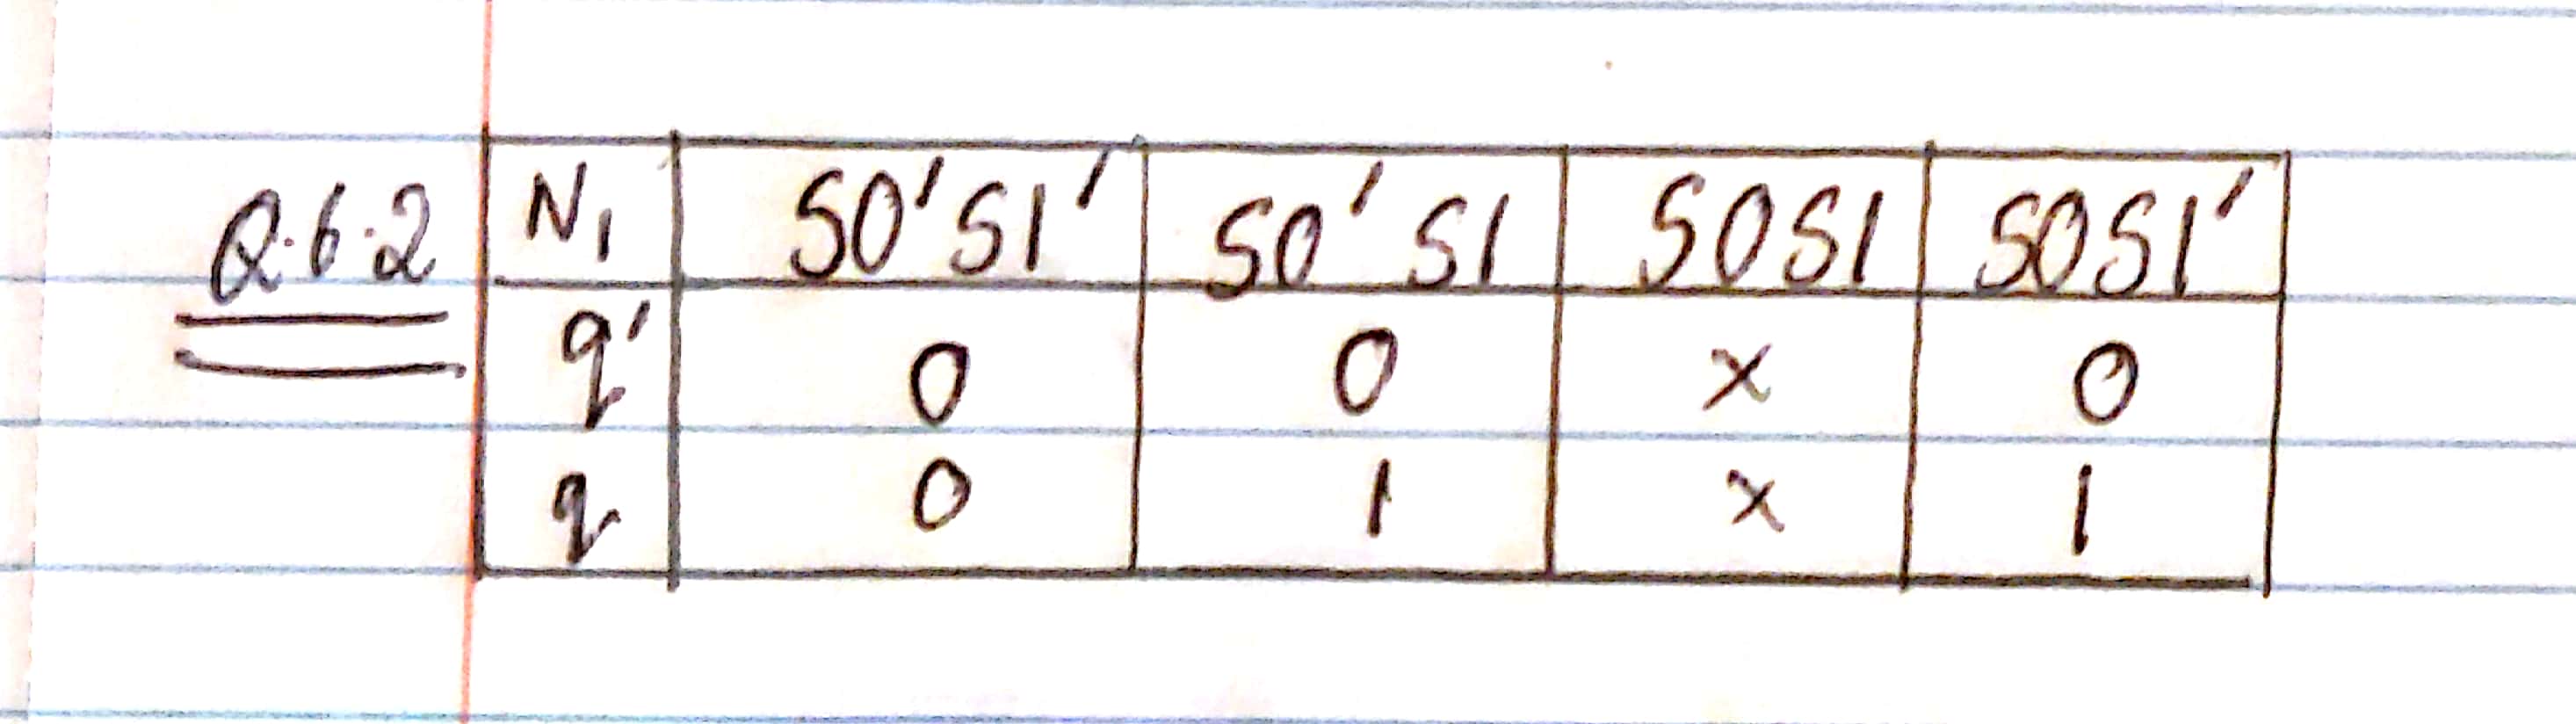 Q.6.2 N1 S0'S1' S0'S1 S0S1 S0S1'
q' 0 0 x 0
q 0 1 x 1